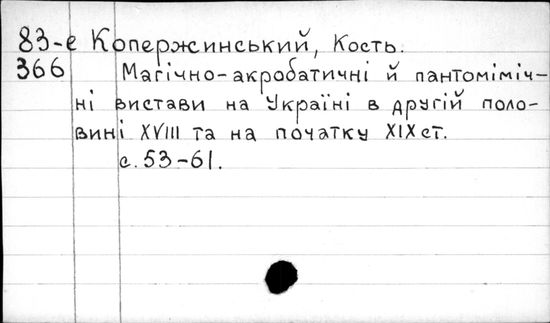 83-е Копержинський, Кость.
366 Магічно-акробатичні й пантоміміч-
ні вистави на Україні в другій поло-
вині XVIII та на початку XIX ст.
с. 53-61.